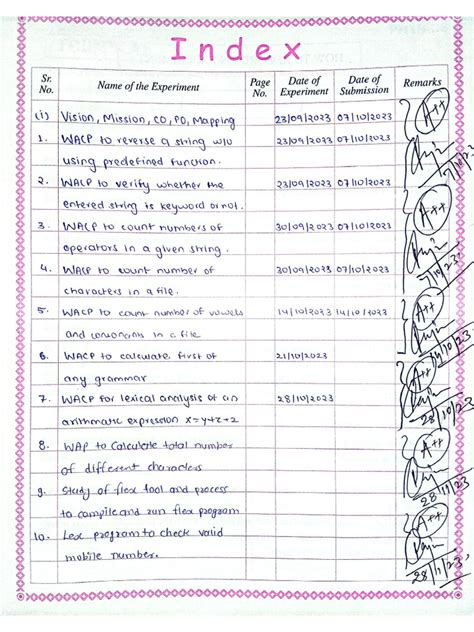 Index
Sr. No. Name of the Experiment Page No. Date of Experiment Date of Submission Remarks
(i) Vision, Mission, CO, PO, Mapping 23/09/2023 07/10/2023 A++
1. WACP to reverse a string w/o
using predefined function. 7/10/23
2. WACP to verify whether the 23/09/2023 07/10/2023
entered string is keyword or not. A++
3. WACP to count numbers of 30/09/2023 07/10/2023
operators in a given string.
4. WACP to count number of 30/09/2023 07/10/2023 7/10/23
characters in a file.
5. WACP to count number of vowels 14/10/2023 14/10/2023 A++
and consonants in a file 14/10/23
6. WACP to calculate first of 21/10/2023
any grammar A++
7. WACP for lexical analysis of an 28/10/2023
arithmatic expression x=y+z*2 28/10/23
8. WAP to Calculate total number A++
of different characters
9. Study of flex tool and process 28/11/23
to compile and run flex program A++
10. Lex program to check valid
mobile number. 28/11/23